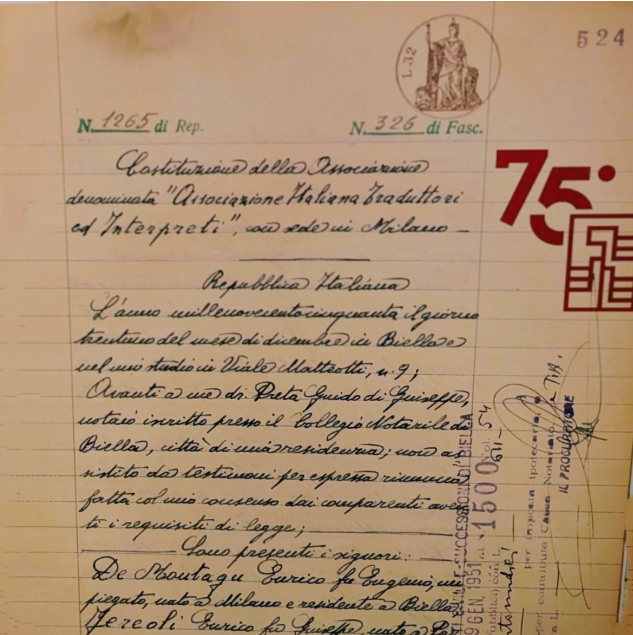 524
L. 32
N. 1265 di Rep. N. 326 di Fasc.
75°
Costituzione della Associazione
denominata "Associazione Italiana Traduttori
ed Interpreti", con sede in Milano
Repubblica Italiana
L'anno millenovecentocinquanta il giorno
trentuno del mese di dicembre in Biella e
nel mio studio in Viale Matteotti, n. 9;
Avanti a me dr. Preta Guido di Giuseppe,
notaio iscritto presso il Collegio Notarile di
Biella, città di mia residenza; non as
sistito da testimoni per espressa rinuncia
fatta col mio consenso dai comparenti aven
ti i requisiti di legge;
Sono presenti i signori:
De Montagu Enrico fu Eugenio, im
piegato, nato a Milano e residente a Biella
Jercoli Enrico fu Giuseppe, nato a
SUCCESSIONI DI BIELLA
9 GEN. 1951
1500
Vol. 54
per imposta ipotecaria
per contributo Cassa Notariato
IL PROCURATORE